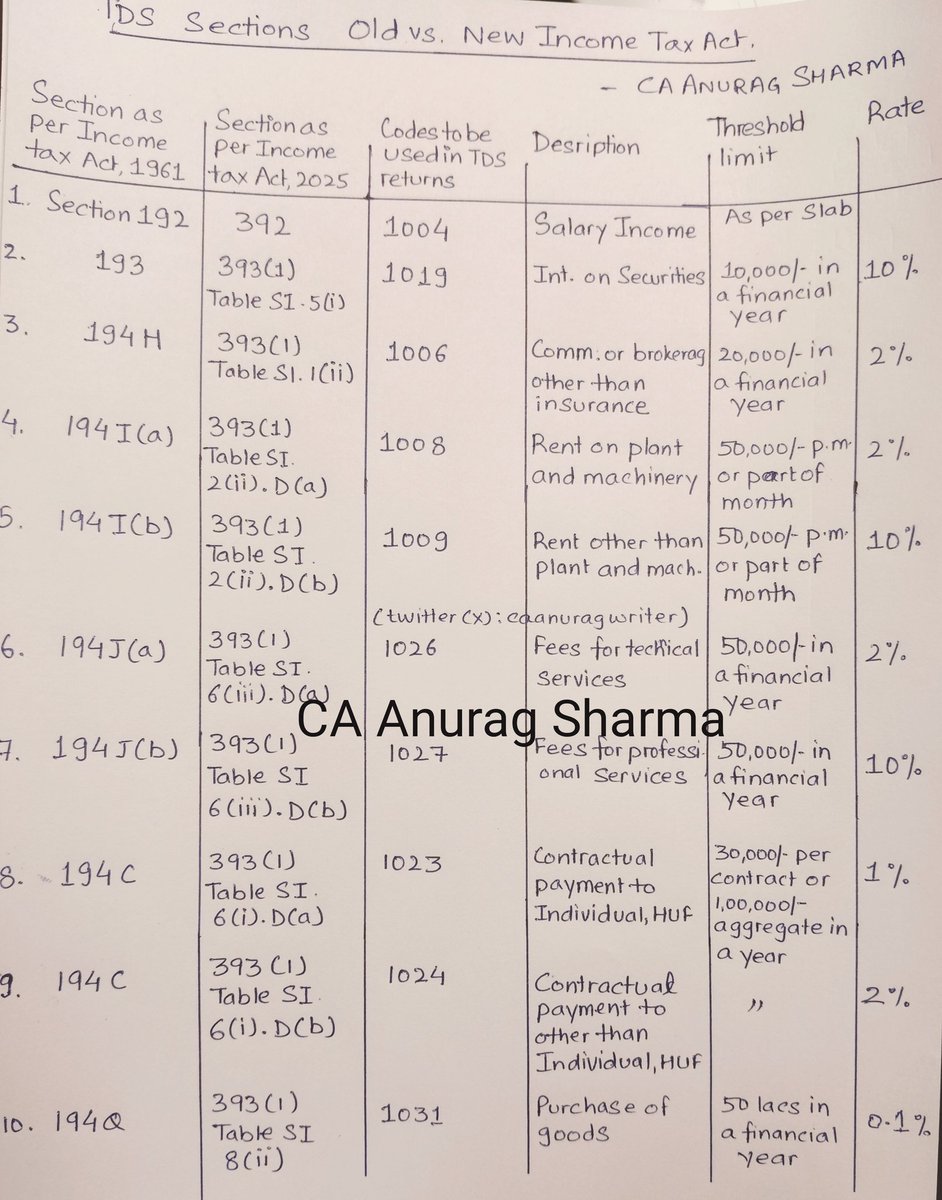 TDS Sections Old vs. New Income Tax Act.
- CA ANURAG SHARMA
Section as per Income tax Act, 1961 | Section as per Income tax Act, 2025 | Codes to be used in TDS returns | Desription | Threshold limit | Rate
1. Section 192 | 392 | 1004 | Salary Income | As per Slab
2. 193 | 393(1) Table SI.5(i) | 1019 | Int. on Securities | 10,000/- in a financial year | 10%
3. 194H | 393(1) Table SI.1(ii) | 1006 | Comm. or brokerag other than insurance | 20,000/- in a financial year | 2%
4. 194I(a) | 393(1) Table SI. 2(ii).D(a) | 1008 | Rent on plant and machinery | 50,000/- p.m. or part of month | 2%
5. 194I(b) | 393(1) Table SI. 2(ii).D(b) | 1009 | Rent other than plant and mach. | 50,000/- p.m. or part of month | 10%
(twitter(x): caanuragwriter)
6. 194J(a) | 393(1) Table SI. 6(iii).D(a) | 1026 | Fees for techical Services | 50,000/- in a financial year | 2%
CA Anurag Sharma
7. 194J(b) | 393(1) Table SI 6(iii).D(b) | 1027 | Fees for professi- onal Services | 50,000/- in a financial year | 10%
8. 194C | 393(1) Table SI. 6(i).D(a) | 1023 | Contractual payment to Individual, HUF | 30,000/- per contract or 1,00,000/- aggregate in a year | 1%
9. 194C | 393(1) Table SI. 6(i).D(b) | 1024 | Contractual payment to other than Individual, HUF | " | 2%
10. 194Q | 393(1) Table SI 8(ii) | 1031 | Purchase of goods | 50 lacs in a financial year | 0.1%